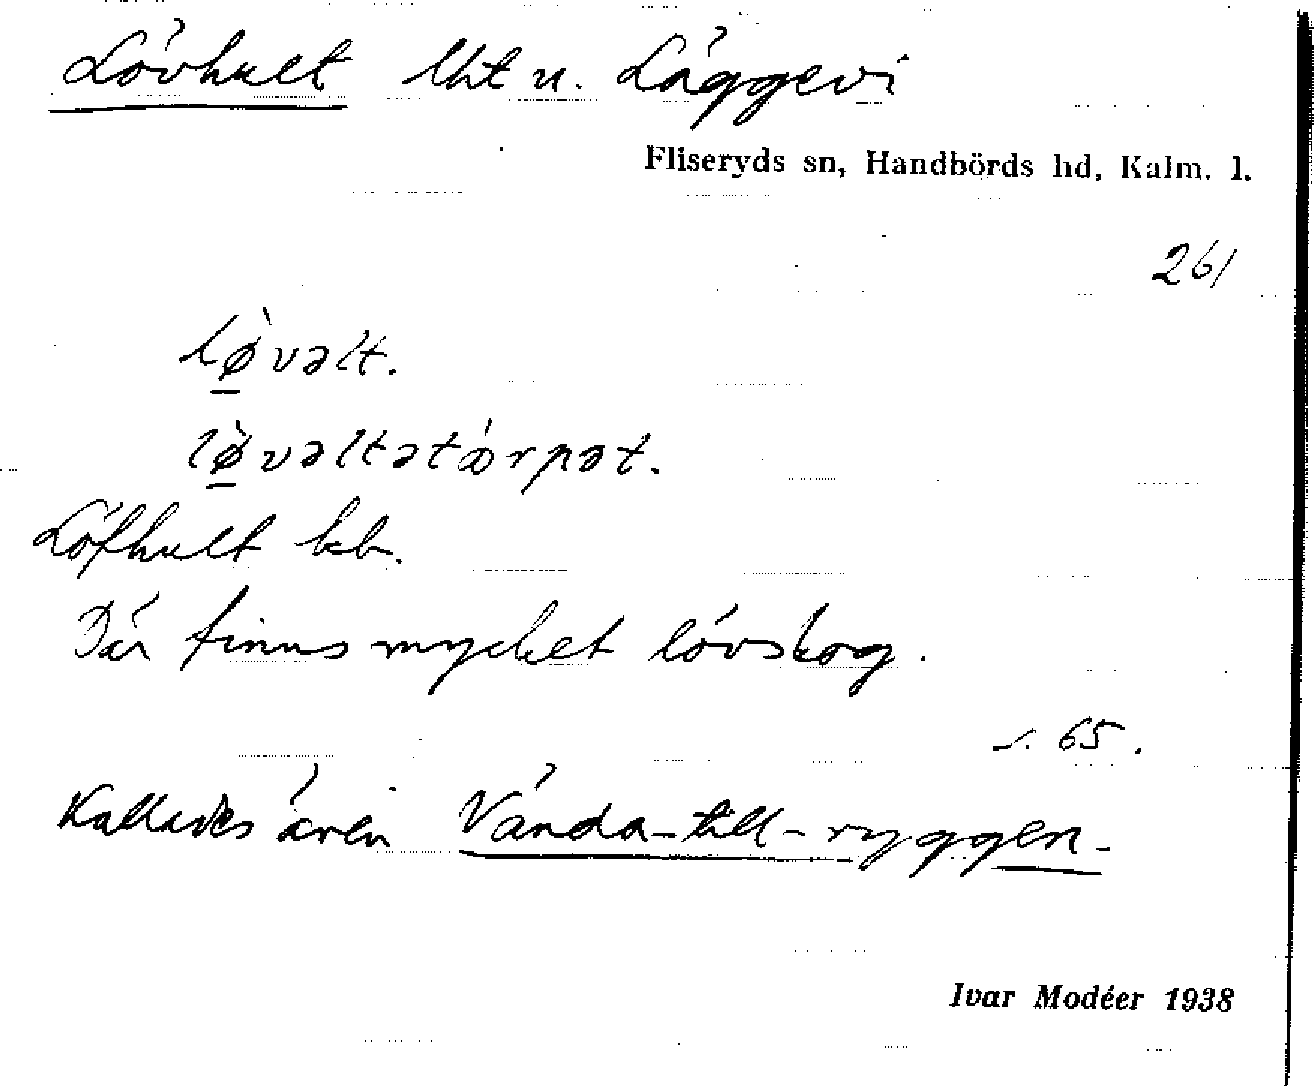 Lövhult lht u. Läggevi
Fliseryds sn, Handbörds hd, Kalm. l.
261
lø̀vəlt.
lø̀vəltətórpət.
Löfhult kb.
Där finns mycket lövskog.
s. 65.
Kallades även Vända-till-ryggen.
Ivar Modéer 1938